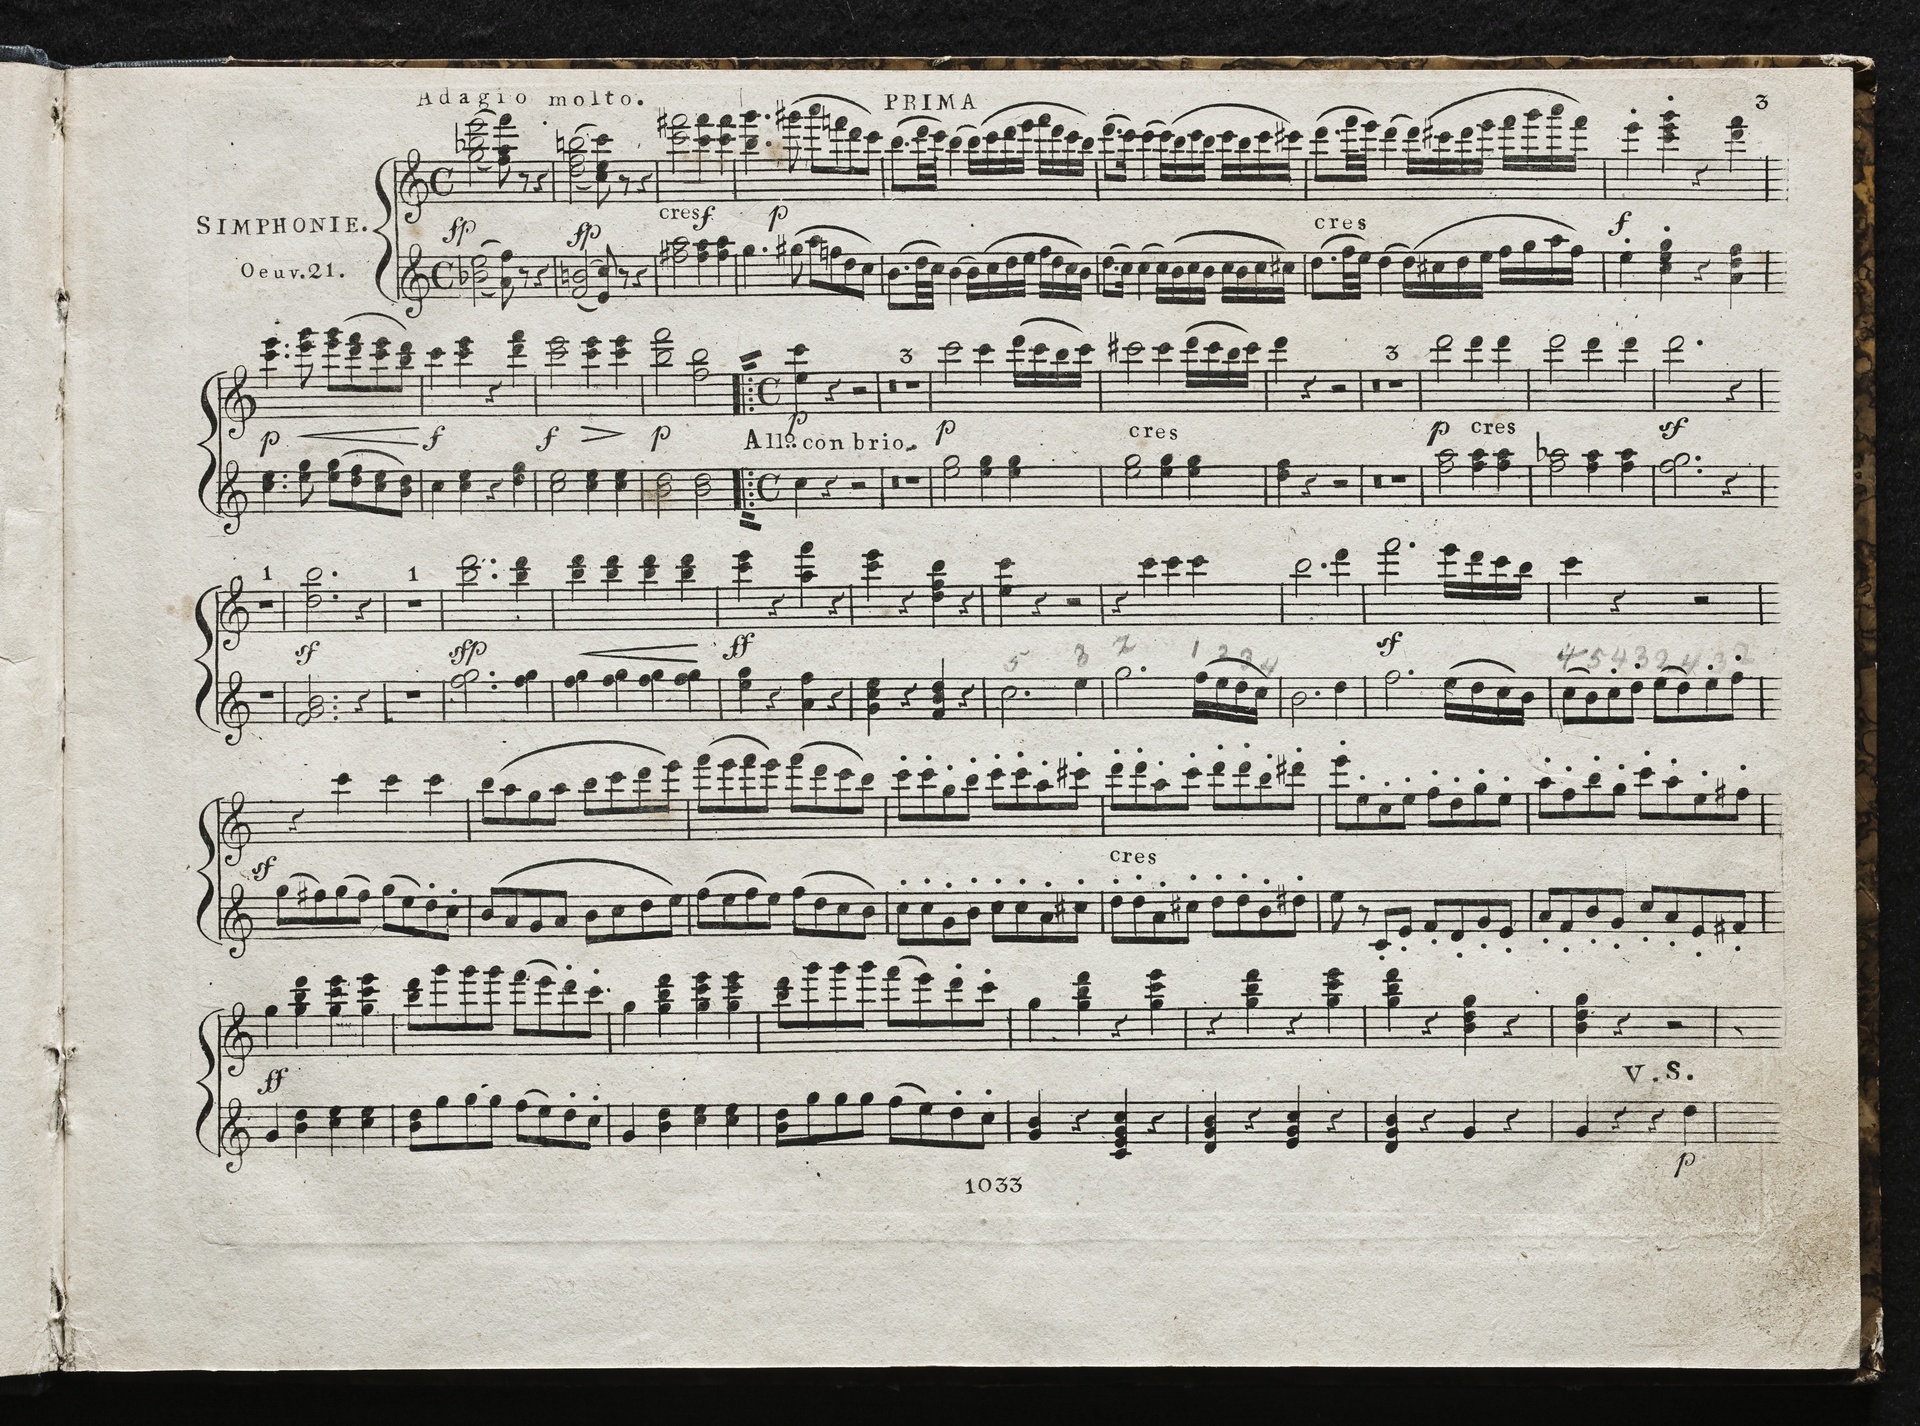 Adagio molto. PRIMA 3
SIMPHONIE.
Oeuv.21.
fp fp cresf p cres f
3 3
p f f p All.o con brio. p cres p cres sf
1 1
sf sfp ff sf
5 3 2 1 2 3 4 4 5 4 3 2 4 3 2
sf cres
ff
V.S.
p
1033